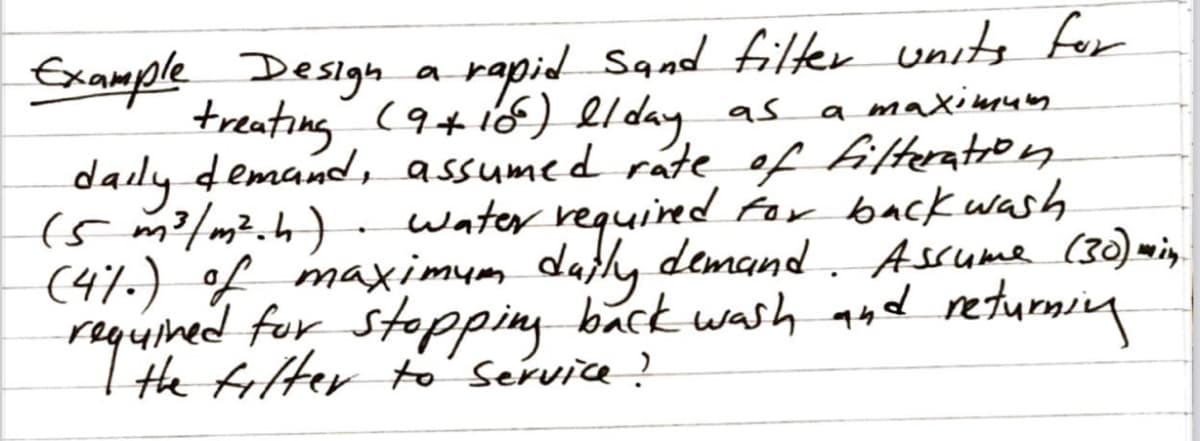 Example Design a rapid sand filter units for
treating (9*10⁶) l/day as a maximum
daily demand, assumed rate of filteration
(5 m³/m².h). water required for back wash
(4%.) of maximum daily demand. Assume (30) min
required for stopping back wash and returning
the filter to service?